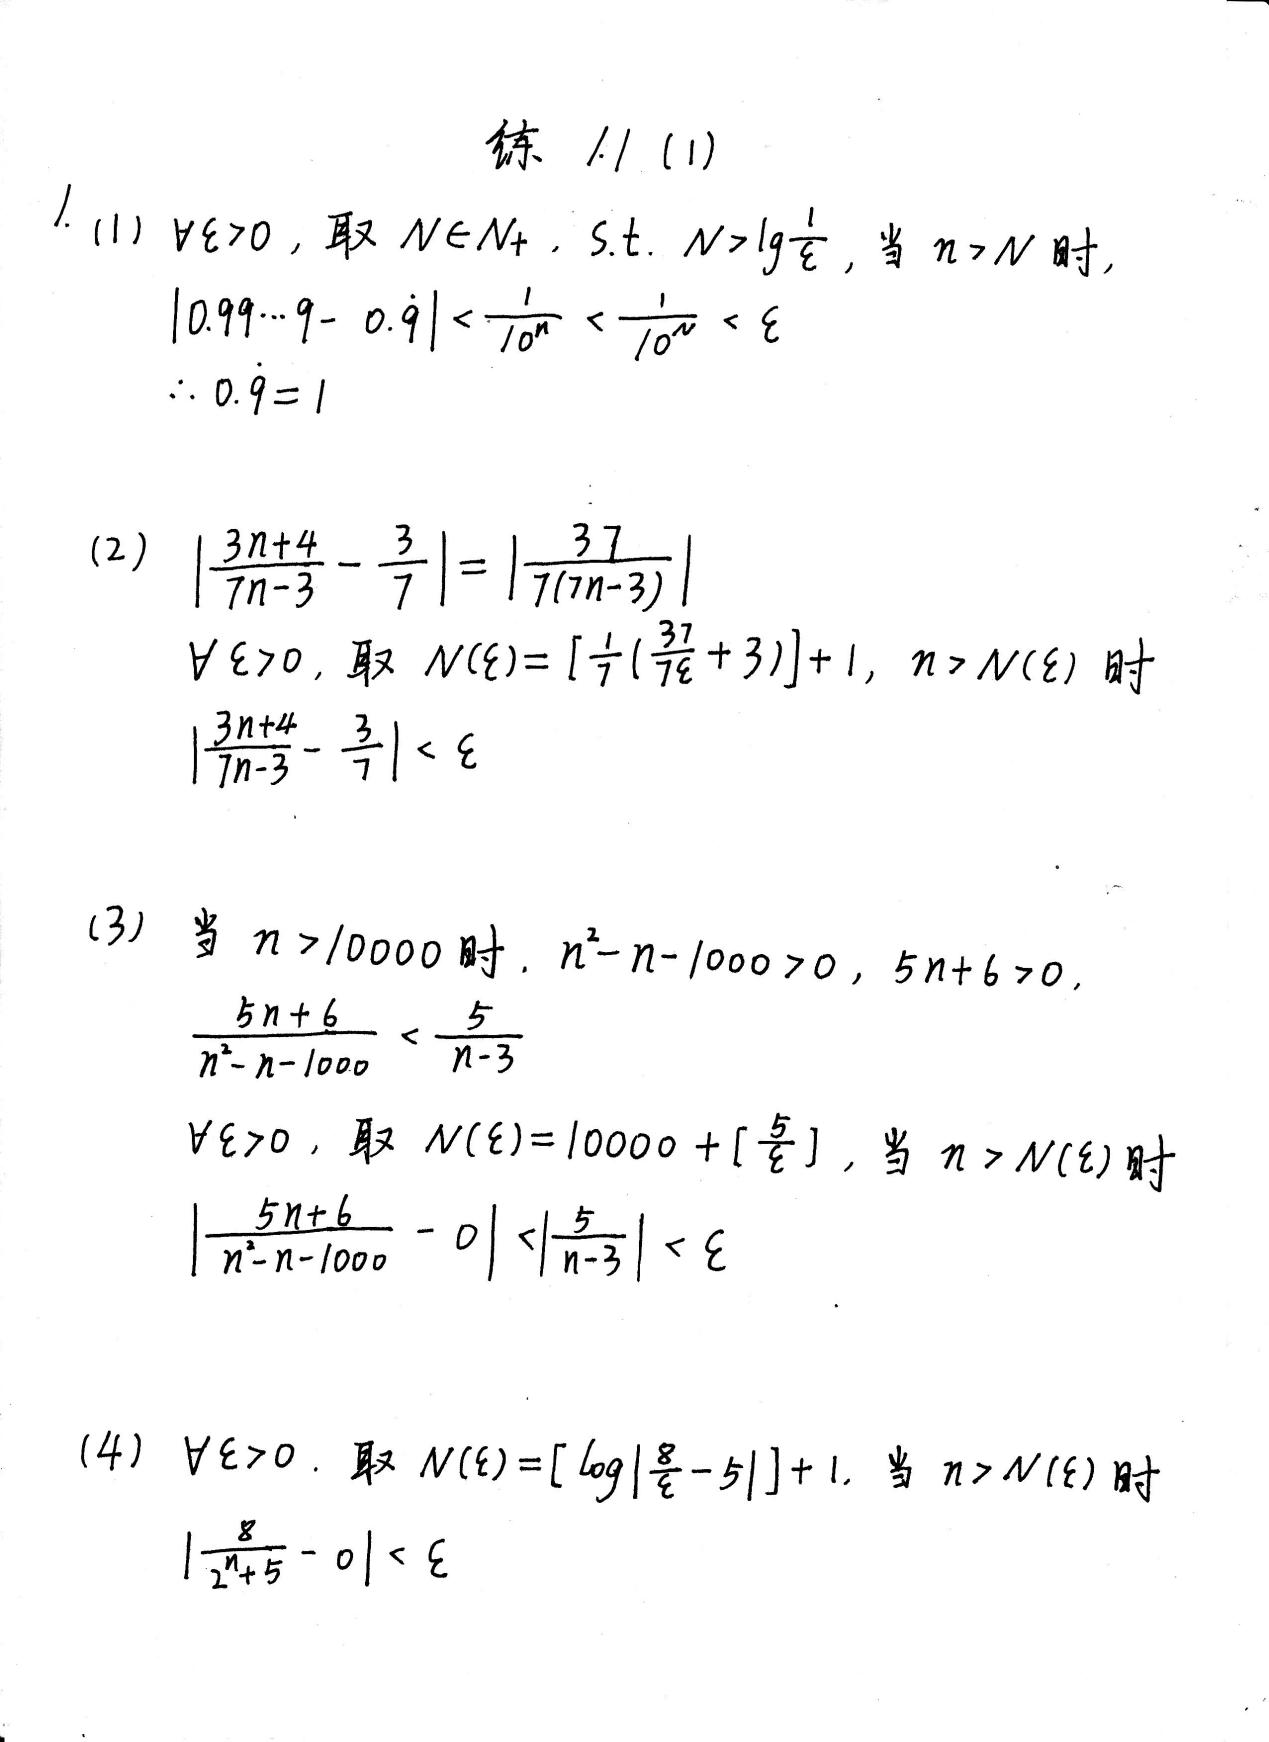 练 1.1 (1)
1. (1) ∀ε>0, 取 N∈N+, s.t. N>lg 1/ε, 当 n>N 时,
|0.99…9 - 0.9̇| < 1/10ⁿ < 1/10ᴺ < ε
∴ 0.9̇ = 1
(2) |(3n+4)/(7n-3) - 3/7| = |37/(7(7n-3))|
∀ε>0, 取 N(ε) = [1/7(37/(7ε)+3)]+1, n>N(ε) 时
|(3n+4)/(7n-3) - 3/7| < ε
(3) 当 n>10000 时, n²-n-1000>0, 5n+6>0,
(5n+6)/(n²-n-1000) < 5/(n-3)
∀ε>0, 取 N(ε) = 10000+[5/ε], 当 n>N(ε) 时
|(5n+6)/(n²-n-1000) - 0| < |5/(n-3)| < ε
(4) ∀ε>0. 取 N(ε) = [log|8/ε-5|]+1, 当 n>N(ε) 时
|8/(2ⁿ+5) - 0| < ε